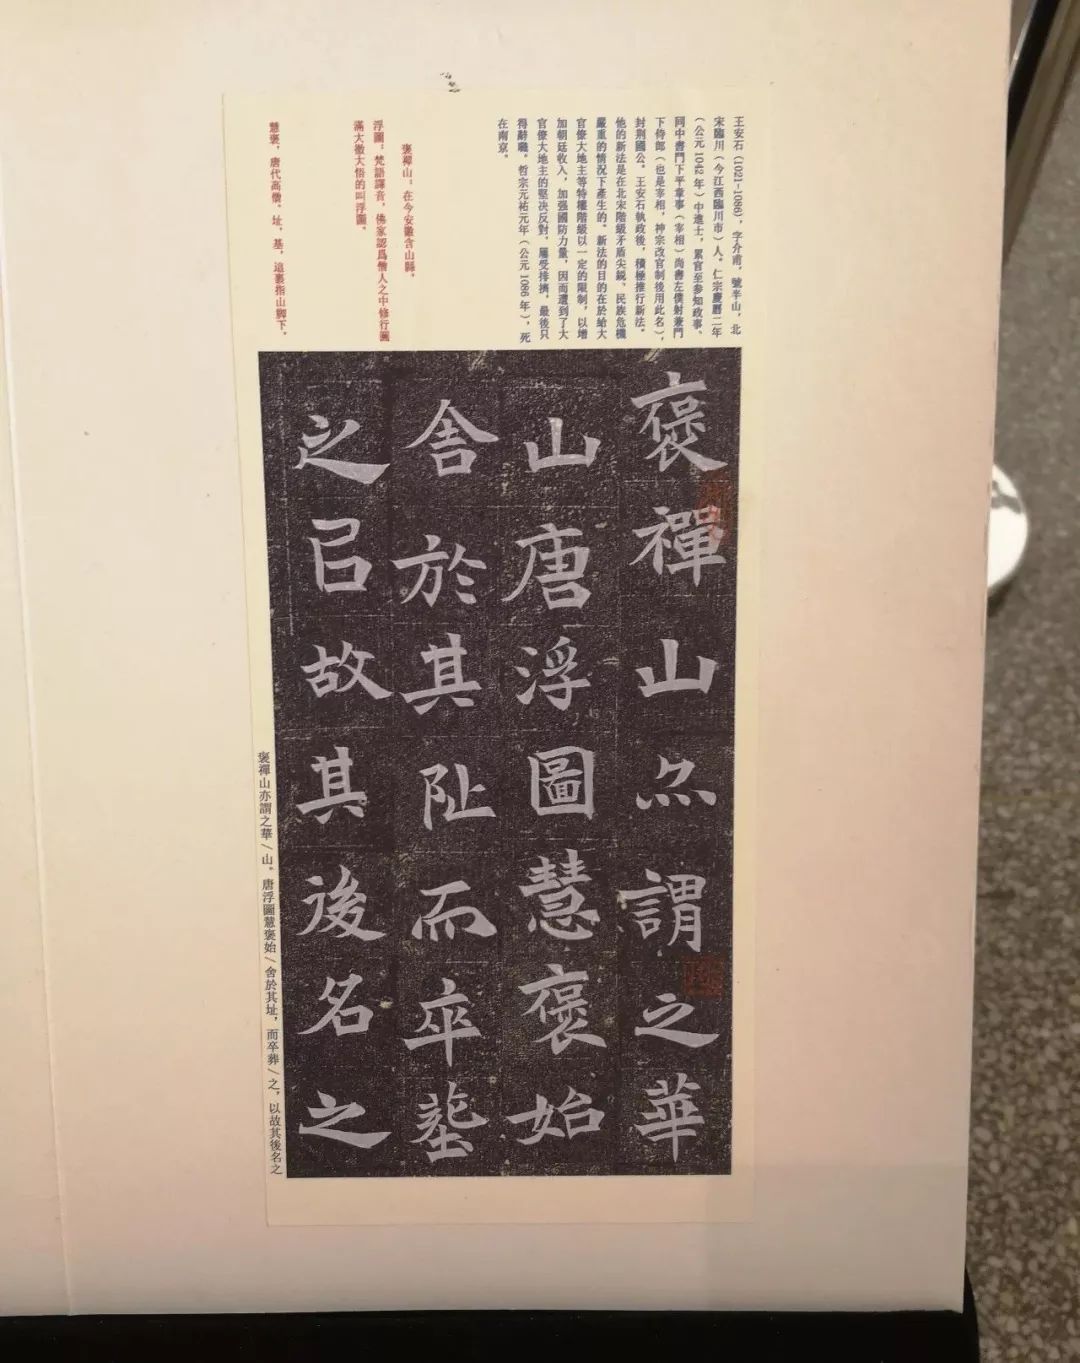 王安石（1021-1086），字介甫，號半山，北
宋臨川（今江西臨川市）人。仁宗慶曆二年
（公元 1042 年）中進士，累官至參知政事、
同中書門下平章事（宰相）尚書左僕射兼門
下侍郎（也是宰相，神宗改官制後用此名），
封荆國公。王安石執政後，積極推行新法。
他的新法是在北宋階級矛盾尖銳、民族危機
嚴重的情況下產生的。新法的目的在於給大
官僚大地主等特權階級以一定的限制，以增
加朝廷收入，加强國防力量，因而遭到了大
官僚大地主的堅决反對，屢受排擠，最後只
得辭職。哲宗元祐元年（公元 1086 年），死
在南京。
褒禪山：在今安徽含山縣。
浮圖：梵語譯音，佛家認爲僧人之中修行圓
滿大徹大悟的叫浮圖。
慧褒，唐代高僧。址，基，這裏指山脚下。
褒禪山亦謂之華
山唐浮圖慧褒始
舍於其阯而卒塟
之㠯故其後名之
褒禪山亦謂之華／山。唐浮圖慧褒始／舍於其址，而卒葬／之，以故其後名之